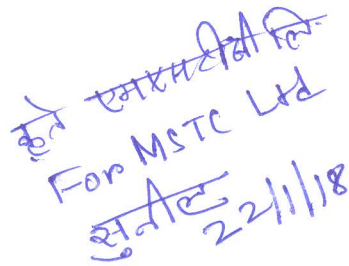 कृते एमएसटीसी लि.
For MSTC Ltd
सुनील
22/1/18